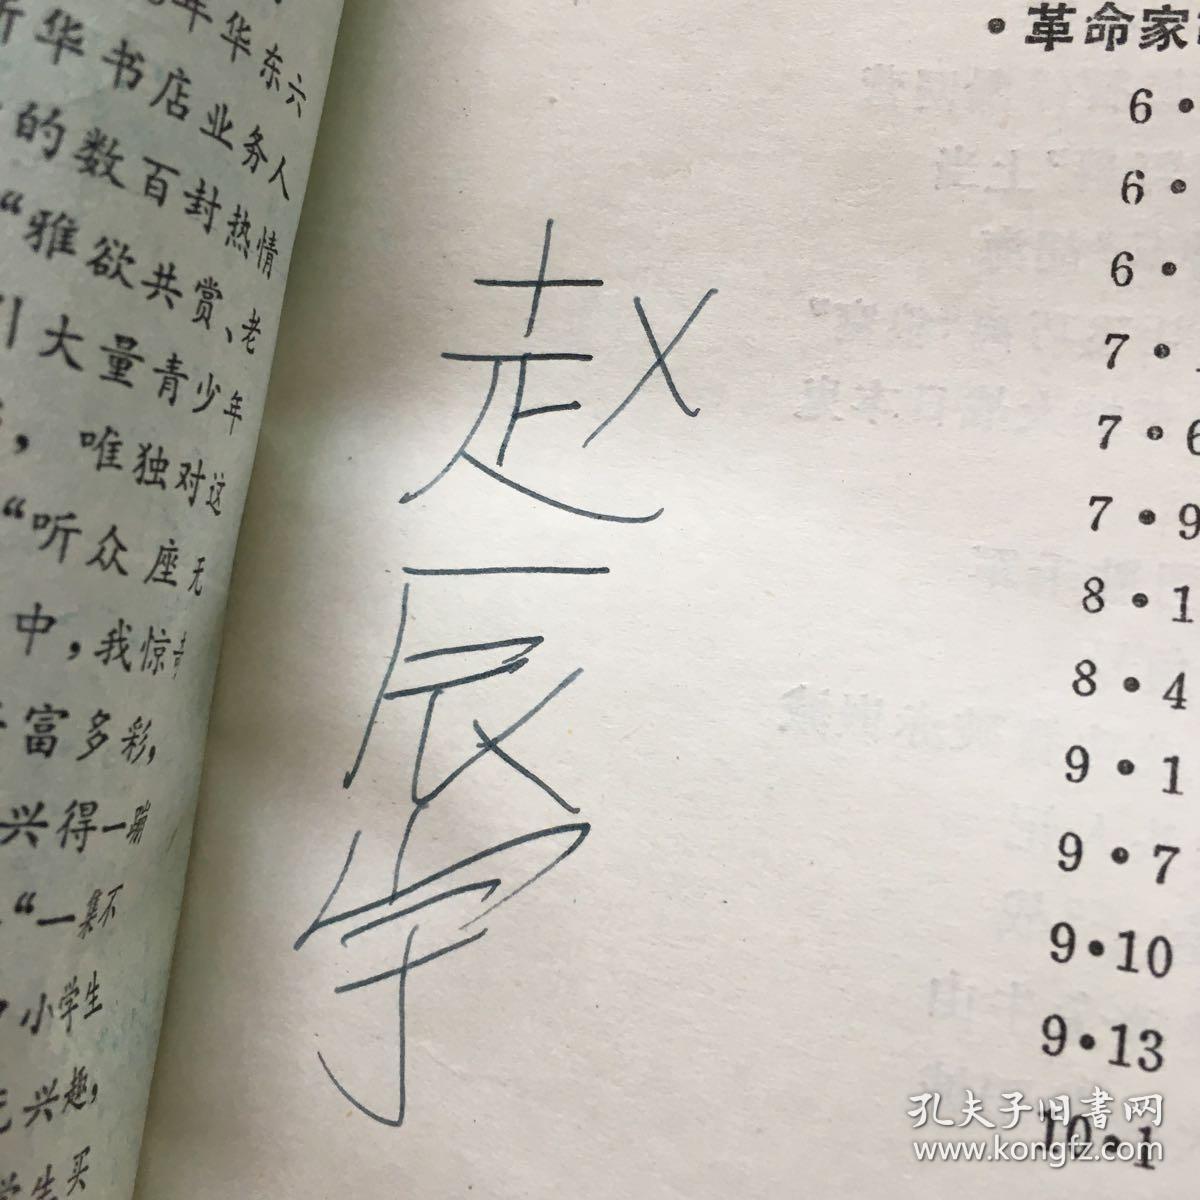 年华东六
新华书店业务人
的数百封热情
“雅欲共赏、老
引大量青少年
，唯独对这
“听众座无
中，我惊
富多彩，
兴得一蹦
“一集不
小学生
兴趣，
学生买
赵辰宇
·革命家
6·
6·
6·
7·
7·6
7·9
8·1
8·4
9·1
9·7
9·10
9·13
10·1
孔夫子旧书网
www.kongfz.com